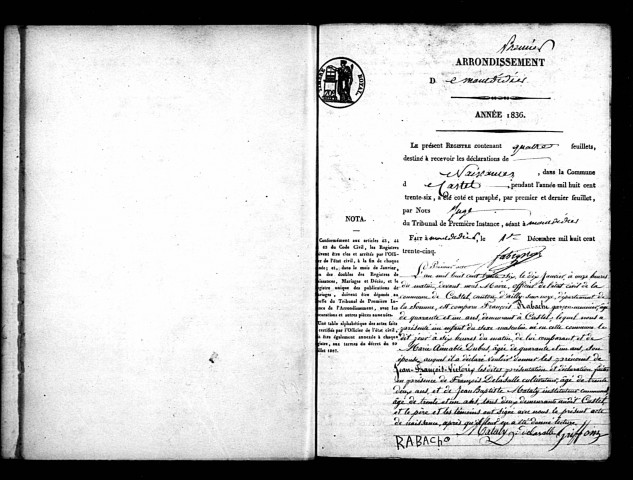 Premier
ARRONDISSEMENT
D e montdidier
ANNÉE 1836.
Le présent REGISTRE contenant quatre feuillets,
destiné à recevoir les déclarations de
Naissances, dans la Commune
d Castel, pendant l'année mil huit cent
trente-six, a été coté et paraphé, par premier et dernier feuillet,
par Nous Juge
du Tribunal de Première Instance, séant à montdidier
FAIT à montdidier, le 1er Décembre mil huit cent
trente-cinq.
NOTA.
Conformément aux articles
du Code Civil, les Registres
être clos et arrêtés par l'Offi-
de l'état civil, à la fin de chaque
et, dans le mois de Janvier,
des doubles des Registres de
Mariages et Décès, et le
registre unique des publications de
mariages, doivent être déposés au
Greffe du Tribunal de Première Ins-
tance de l'Arrondissement, avec les
et autres pièces annexées.
Une table alphabétique des actes faite
certifiée par l'Officier de l'état civil,
être également annexée à chaque
aux termes du décret du
juillet 1807.
L'an mil huit cent trente six, le dix Janvier, à onze heures
du matin, devant nous Maire, officier de l'état civil de la
commune de Castel, canton d'ailly sur noye, département de
la somme, est comparu François Rabache garçon meunier, âgé
de quarante et un ans, demeurant à Castel, lequel nous a
présenté un enfant du sexe masculin, né en cette commune le
dit jour à dix heures du matin, de lui comparant et de
Marie Aimable Dubus, âgée de quarante et un ans, son
épouse, auquel il a déclaré vouloir donner les prénoms de
Jean François Victoris, les dites présentation et déclaration faites
en présence de François Delaselle cultivateur, âgé de trente
deux ans, et de Jean Baptiste Mataly instituteur communal
âgé de trente et un ans, tous deux demeurants audit Castel
et le père et les témoins ont signé avec nous le présent acte
de naissance, après qu'il leur en a été donné lecture.
Mataly
RABACHO